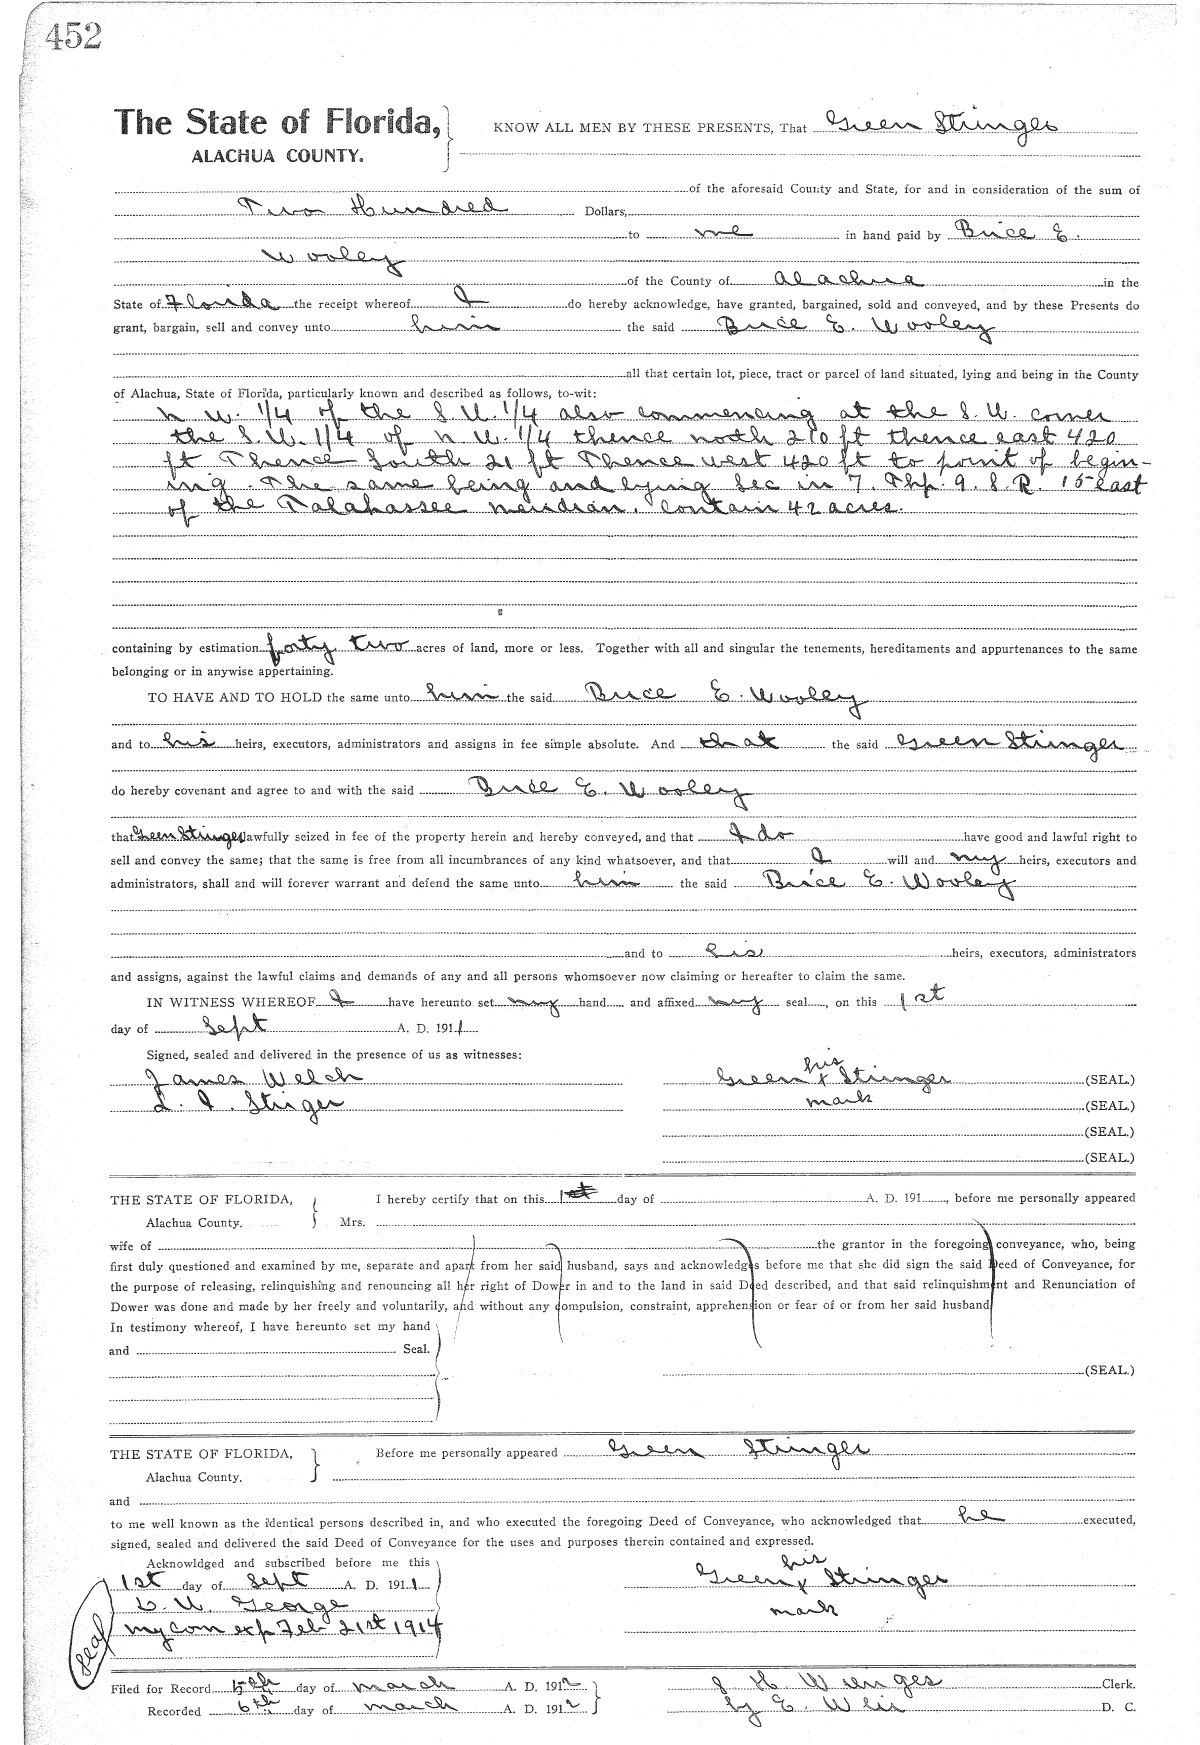 452
The State of Florida, KNOW ALL MEN BY THESE PRESENTS, That Green Stringer
ALACHUA COUNTY.
of the aforesaid County and State, for and in consideration of the sum of
Two Hundred Dollars,
to me in hand paid by Brice E.
Wooley
of the County of Alachua in the
State of Florida the receipt whereof I do hereby acknowledge, have granted, bargained, sold and conveyed, and by these Presents do
grant, bargain, sell and convey unto him the said Brice E. Wooley
all that certain lot, piece, tract or parcel of land situated, lying and being in the County
of Alachua, State of Florida, particularly known and described as follows, to-wit:
N W. 1/4 of the S W. 1/4 also commencing at the S. W. corner
the S. W. 1/4 of N W. 1/4 thence north 210 ft thence east 420
ft Thence South 21 ft Thence west 420 ft to point of begin-
ing. The same being and lying Sec in 7. Thp. 9. S. R. 15 east
of the Talahassee meridian. Contain 42 acres.
containing by estimation forty two acres of land, more or less. Together with all and singular the tenements, hereditaments and appurtenances to the same
belonging or in anywise appertaining.
TO HAVE AND TO HOLD the same unto him the said Brice E. Wooley
and to his heirs, executors, administrators and assigns in fee simple absolute. And that the said Green Stringer
do hereby covenant and agree to and with the said Brice E. Wooley
that Green Stringer lawfully seized in fee of the property herein and hereby conveyed, and that I do have good and lawful right to
sell and convey the same; that the same is free from all incumbrances of any kind whatsoever, and that I will and my heirs, executors and
administrators, shall and will forever warrant and defend the same unto him the said Brice E. Wooley
and to his heirs, executors, administrators
and assigns, against the lawful claims and demands of any and all persons whomsoever now claiming or hereafter to claim the same.
IN WITNESS WHEREOF I have hereunto set my hand and affixed my seal, on this 1st
day of Sept A. D. 1911
Signed, sealed and delivered in the presence of us as witnesses:
his
James Welch Green x Stringer (SEAL.)
L. I. Stinger mark (SEAL.)
(SEAL.)
(SEAL.)
THE STATE OF FLORIDA, I hereby certify that on this 1st day of A. D. 191 , before me personally appeared
Alachua County. Mrs.
wife of the grantor in the foregoing conveyance, who, being
first duly questioned and examined by me, separate and apart from her said husband, says and acknowledges before me that she did sign the said Deed of Conveyance, for
the purpose of releasing, relinquishing and renouncing all her right of Dower in and to the land in said Deed described, and that said relinquishment and Renunciation of
Dower was done and made by her freely and voluntarily, and without any compulsion, constraint, apprehension or fear of or from her said husband
In testimony whereof, I have hereunto set my hand
and Seal.
(SEAL.)
THE STATE OF FLORIDA, Before me personally appeared Green Stringer
Alachua County.
and
to me well known as the identical persons described in, and who executed the foregoing Deed of Conveyance, who acknowledged that he executed,
signed, sealed and delivered the said Deed of Conveyance for the uses and purposes therein contained and expressed.
Acknowldged and subscribed before me this his
1st day of Sept A. D. 1911 Green x Stringer
George mark
seal my com exp Feb 21st 1914
Filed for Record 5th day of March A. D. 1912 Clerk.
Recorded 6th day of March A. D. 1912 by E. D. C.